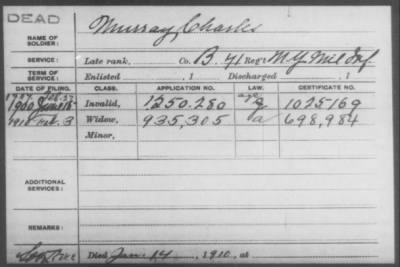 DEAD
NAME OF SOLDIER: Murray, Charles
SERVICE: Late rank, Co. B. 71 Reg't N.Y. Mil Inf.
TERM OF SERVICE: Enlisted , 1 Discharged , 1
DATE OF FILING. CLASS. APPLICATION NO. LAW. CERTIFICATE NO.
1900 June 18 Invalid, 1250.280 1025169
1910 Feb. 3 Widow, 935,305 a 698,984
Minor,
ADDITIONAL SERVICES:
REMARKS:
Died Jan. 14 , 1910, at